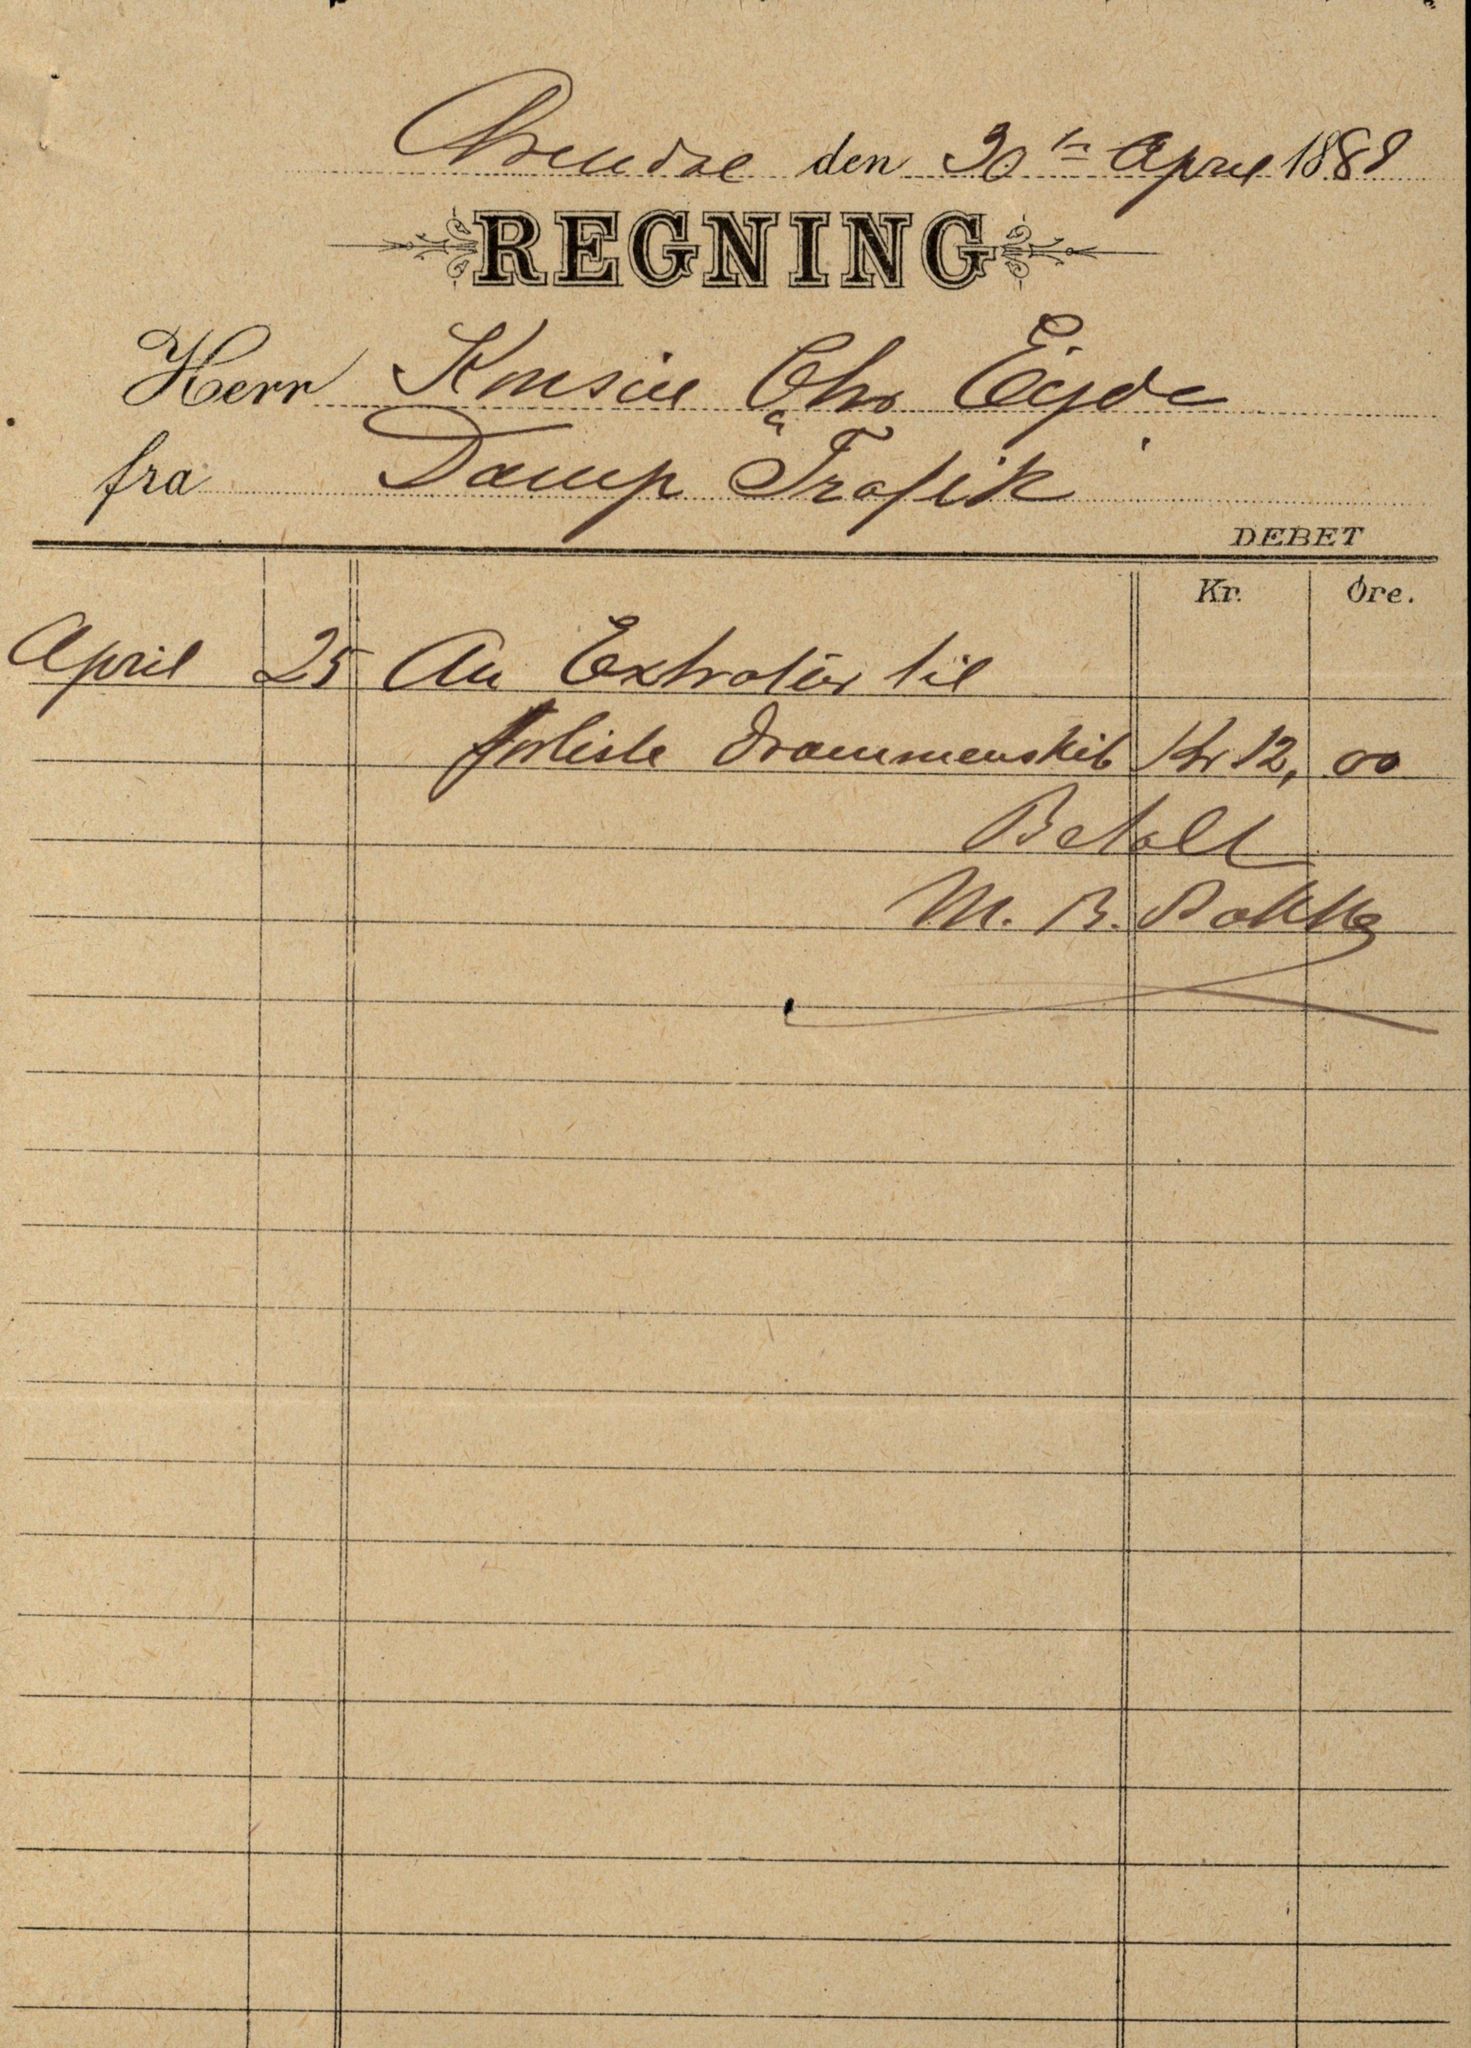 Arendal den 30te April 1888
REGNING
Herr Konsul Chr Eyde
fra Damp Trafik
DEBET
Kr. Øre.
April 25 An Extratur til
forliste Drammenskib Kr 12, 00
Betalt
M. B.